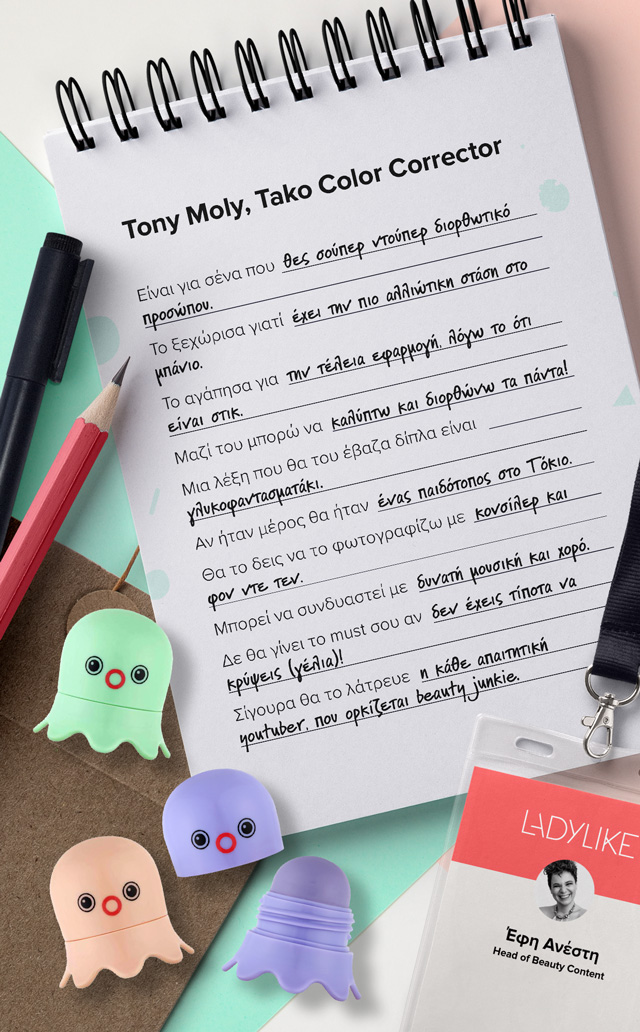 Tony Moly, Tako Color Corrector
Είναι για σένα που θες σούπερ ντούπερ διορθωτικό
προσώπου.
Το ξεχώρισα γιατί έχει την πιο αλλιώτικη στάση στο
μπάνιο.
Το αγάπησα για την τέλεια εφαρμογή, λόγω το ότι
είναι στικ.
Μαζί του μπορώ να καλύπτω και διορθώνω τα πάντα!
Μια λέξη που θα του έβαζα δίπλα είναι
γλυκοφαντασματάκι.
Αν ήταν μέρος θα ήταν ένας παιδότοπος στο Τόκιο.
Θα το δεις να το φωτογραφίζω με κονσίλερ και
φον ντε τεν.
Μπορεί να συνδυαστεί με δυνατή μουσική και χορό.
Δε θα γίνει το must σου αν δεν έχεις τίποτα να
κρύψεις (γέλια)!
Σίγουρα θα το λάτρευε η κάθε απαιτητική
youtuber, που ορκίζεται beauty junkie.
LADYLIKE
Έφη Ανέστη
Head of Beauty Content